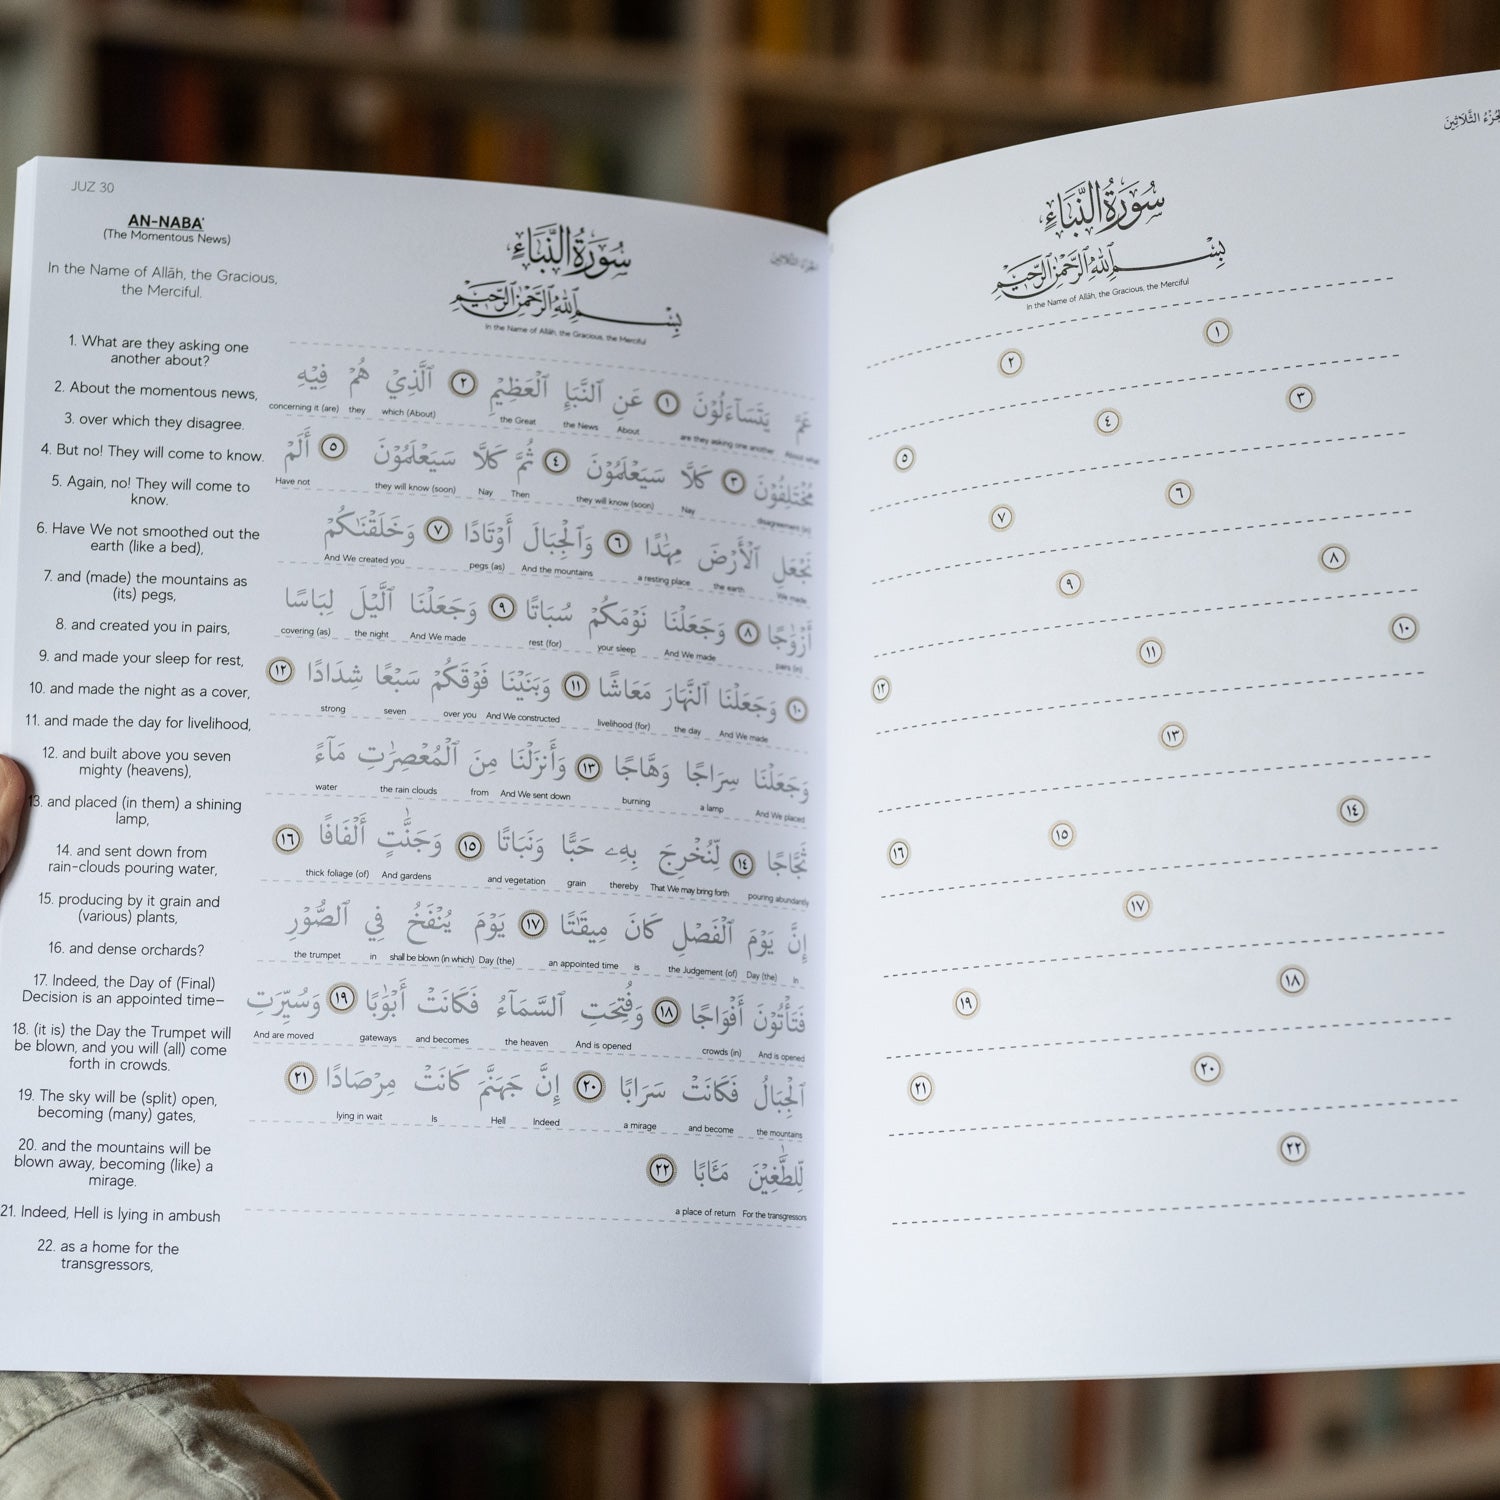 JUZ 30
AN-NABA'
(The Momentous News)
In the Name of Allāh, the Gracious,
the Merciful.
1. What are they asking one
another about?
2. About the momentous news,
3. over which they disagree.
4. But no! They will come to know.
5. Again, no! They will come to
know.
6. Have We not smoothed out the
earth (like a bed),
7. and (made) the mountains as
(its) pegs,
8. and created you in pairs,
9. and made your sleep for rest,
10. and made the night as a cover,
11. and made the day for livelihood,
12. and built above you seven
mighty (heavens),
13. and placed (in them) a shining
lamp,
14. and sent down from
rain-clouds pouring water,
15. producing by it grain and
(various) plants,
16. and dense orchards?
17. Indeed, the Day of (Final)
Decision is an appointed time—
18. (it is) the Day the Trumpet will
be blown, and you will (all) come
forth in crowds.
19. The sky will be (split) open,
becoming (many) gates,
20. and the mountains will be
blown away, becoming (like) a
mirage.
21. Indeed, Hell is lying in ambush
22. as a home for the
transgressors,
الجُزْءُ الثَّلَاثِينَ
سُورَةُ النَّبَاءِ
بِسْمِ اللَّهِ الرَّحْمَٰنِ الرَّحِيمِ
In the Name of Allāh, the Gracious, the Merciful
عَمَّ يَتَسَآءَلُوْنَ ١ عَنِ ٱلنَّبَإِ ٱلْعَظِيْمِ ٢ ٱلَّذِيْ هُمْ فِيْهِ
concerning it (are) they which (About) the Great the News About are they asking one another About what
مُخْتَلِفُوْنَ ٣ كَلَّا سَيَعْلَمُوْنَ ٤ ثُمَّ كَلَّا سَيَعْلَمُوْنَ ٥ أَلَمْ
Have not they will know (soon) Nay Then they will know (soon) Nay disagreement (in)
نَجْعَلِ ٱلْأَرْضَ مِهَٰدًا ٦ وَٱلْجِبَالَ أَوْتَادًا ٧ وَخَلَقْنَٰكُمْ
And We created you pegs (as) And the mountains a resting place the earth We made
أَزْوَٰجًا ٨ وَجَعَلْنَا نَوْمَكُمْ سُبَاتًا ٩ وَجَعَلْنَا ٱلَّيْلَ لِبَاسًا
covering (as) the night And We made rest (for) your sleep And We made pairs (in)
١٠ وَجَعَلْنَا ٱلنَّهَارَ مَعَاشًا ١١ وَبَنَيْنَا فَوْقَكُمْ سَبْعًا شِدَادًا ١٢
strong seven over you And We constructed livelihood (for) the day And We made
وَجَعَلْنَا سِرَاجًا وَهَّاجًا ١٣ وَأَنزَلْنَا مِنَ ٱلْمُعْصِرَٰتِ مَآءً
water the rain clouds from And We sent down burning a lamp And We placed
ثَجَّاجًا ١٤ لِّنُخْرِجَ بِهِۦ حَبًّا وَنَبَاتًا ١٥ وَجَنَّٰتٍ أَلْفَافًا ١٦
thick foliage (of) And gardens and vegetation grain thereby That We may bring forth pouring abundantly
إِنَّ يَوْمَ ٱلْفَصْلِ كَانَ مِيقَٰتًا ١٧ يَوْمَ يُنْفَخُ فِي ٱلصُّوْرِ
the trumpet in shall be blown (in which) Day (the) an appointed time is the Judgement (of) Day (the) In
فَتَأْتُوْنَ أَفْوَاجًا ١٨ وَفُتِحَتِ ٱلسَّمَآءُ فَكَانَتْ أَبْوَٰبًا ١٩ وَسُيِّرَتِ
And are moved gateways and becomes the heaven And is opened crowds (in) And is opened
ٱلْجِبَالُ فَكَانَتْ سَرَابًا ٢٠ إِنَّ جَهَنَّمَ كَانَتْ مِرْصَادًا ٢١
lying in wait Is Hell Indeed a mirage and become the mountains
لِّلطَّٰغِيْنَ مَـَٔابًا ٢٢
a place of return For the transgressors
جُزْءُ الثَّلَاثِينَ
سُورَةُ النَّبَاءِ
بِسْمِ اللَّهِ الرَّحْمَٰنِ الرَّحِيمِ
In the Name of Allāh, the Gracious, the Merciful
١ ٢
٣ ٤ ٥
٦ ٧
٨ ٩
١٠ ١١ ١٢
١٣
١٤ ١٥ ١٦
١٧
١٨ ١٩
٢٠ ٢١
٢٢